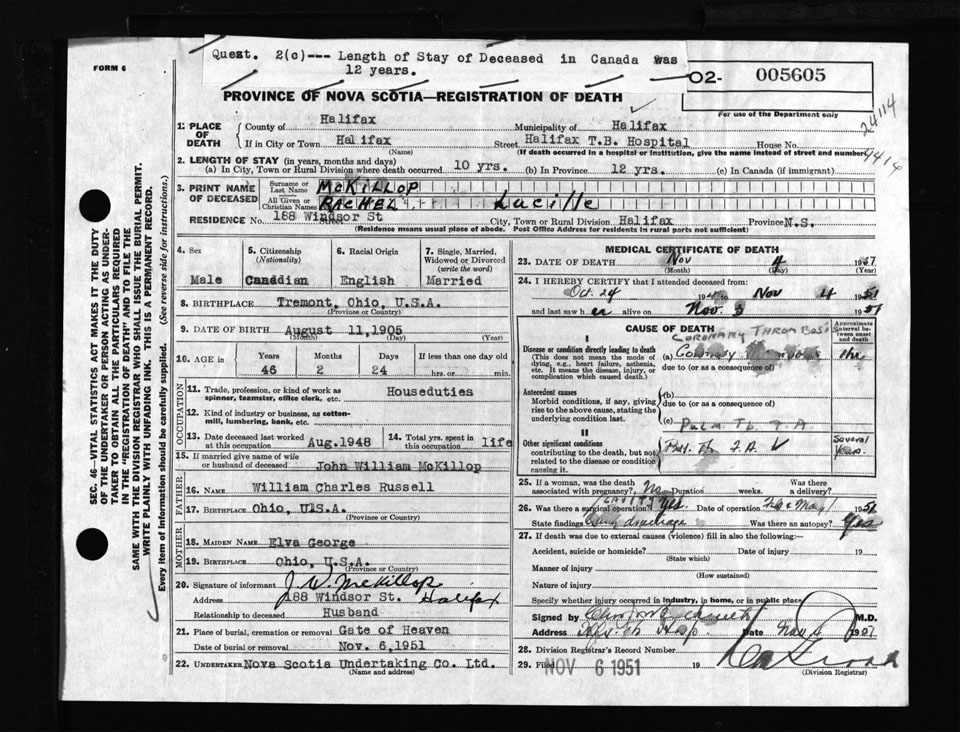 Quest. 2(c)--- Length of Stay of Deceased in Canada was
12 years.
FORM 6
O2- 005605
PROVINCE OF NOVA SCOTIA—REGISTRATION OF DEATH
For use of the Department only
24114
1. PLACE OF DEATH { County of Halifax Municipality of Halifax
If in City or Town Halifax Street Halifax T.B. Hospital House No.
(Name) (If death occurred in a hospital or institution, give the name instead of street and number)
2. LENGTH OF STAY (in years, months and days)
(a) In City, Town or Rural Division where death occurred 10 yrs. (b) In Province 12 yrs. (c) In Canada (if immigrant)
3. PRINT NAME OF DECEASED { Surname or Last Name McKILLOP
All Given or Christian Names RACHEL Lucille
RESIDENCE No. 188 Windsor St City, Town or Rural Division Halifax Province N.S.
Street (Residence means usual place of abode. Post Office Address for residents in rural parts not sufficient)
4. Sex Male
5. Citizenship (Nationality) Canadian
6. Racial Origin English
7. Single, Married, Widowed or Divorced (write the word) Married
8. BIRTHPLACE Tremont, Ohio, U.S.A.
(Province or Country)
9. DATE OF BIRTH August 11,1905
(Month) (Day) (Year)
10. AGE in Years Months Days If less than one day old
46 2 24 hrs. or min.
OCCUPATION
11. Trade, profession, or kind of work as spinner, teamster, office clerk, etc. Houseduties
12. Kind of industry or business, as cotton-mill, lumbering, bank, etc.
13. Date deceased last worked at this occupation Aug.1948
14. Total yrs. spent in this occupation life
15. If married give name of wife or husband of deceased John William McKillop
FATHER
16. NAME William Charles Russell
17. BIRTHPLACE Ohio, UIS.A.
(Province or Country)
MOTHER
18. MAIDEN NAME Elva George
19. BIRTHPLACE Ohio, U.S.A.
(Province or Country)
20. Signature of informant J. W. McKillop
Address 188 Windsor St. Halifax
Relationship to deceased Husband
21. Place of burial, cremation or removal Gate of Heaven
Date of burial or removal Nov. 6,1951
22. UNDERTAKER Nova Scotia Undertaking Co. Ltd.
(Name and address)
MEDICAL CERTIFICATE OF DEATH
23. DATE OF DEATH Nov 4 19
(Month) (Day) (Year)
24. I HEREBY CERTIFY that I attended deceased from:
Oct. 24 19 to Nov 4 1951
and last saw her alive on Nov. 3 1951
CAUSE OF DEATH
Approximate interval between onset and death
I
CORONARY THROMBOSIS
Disease or condition directly leading to death (a) Coronary 1 hr
(This does not mean the mode of dying, e.g., heart failure, asthenia, etc. It means the disease, injury, or complication which caused death.)
due to (or as a consequence of)
Antecedent causes (b)
Morbid conditions, if any, giving rise to the above cause, stating the underlying condition last.
due to (or as a consequence of)
(c) Pulm Tb.
II
Other significant conditions contributing to the death, but not related to the disease or condition causing it. Several Years.
25. If a woman, was the death associated with pregnancy? No Duration weeks. Was there a delivery?
26. Was there a surgical operation? Yes Date of operation May 1951
CAVITY
State findings drainage Was there an autopsy? Yes
27. If death was due to external causes (violence) fill in also the following:—
Accident, suicide or homicide? Date of injury 19
(State which)
Manner of injury
(How sustained)
Nature of injury
Specify whether injury occurred in industry, in home, or in public place
Signed by M.D.
Address Date Nov 1951
28. Division Registrar's Record Number
29. Filed NOV 6 1951 19
(Division Registrar)
SEC. 46—VITAL STATISTICS ACT MAKES IT THE DUTY OF THE UNDERTAKER OR PERSON ACTING AS UNDERTAKER TO OBTAIN ALL THE PARTICULARS REQUIRED IN THE "REGISTRATION OF DEATH" AND TO FILE THE SAME WITH THE DIVISION REGISTRAR WHO SHALL ISSUE THE BURIAL PERMIT.
WRITE PLAINLY WITH UNFADING INK. THIS IS A PERMANENT RECORD.
Every item of information should be carefully supplied. (See reverse side for instructions.)